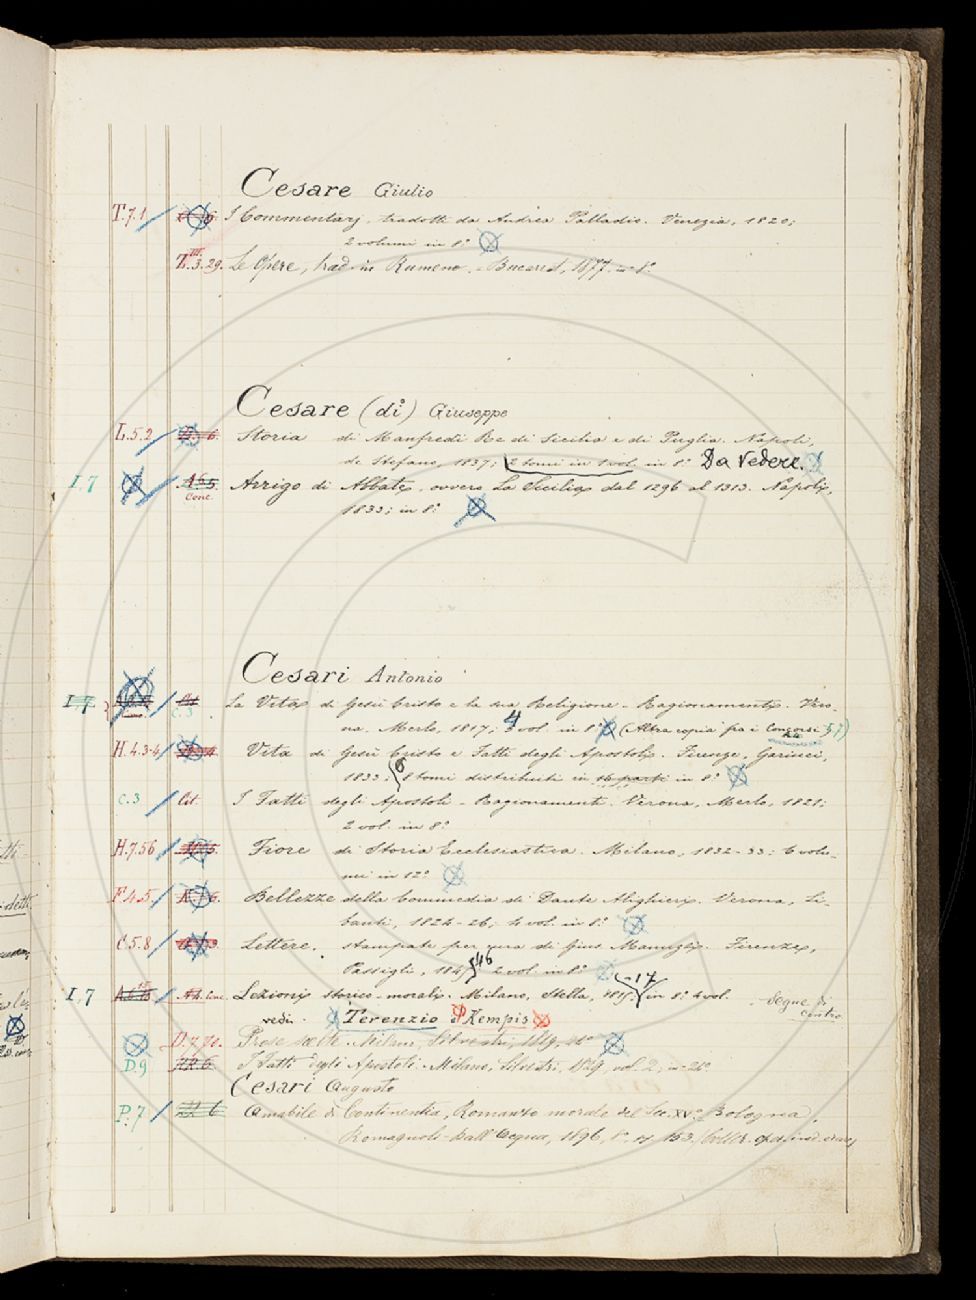 Cesare Giulio
T.7.1 I Commentarj, tradotti da Andrea Palladio. Venezia, 1820;
2 volumi in 8°
Z.III.3.29. Le Opere, trad. in Rumeno. - Bucarest, 1877. in 8°.
Cesare (di) Giuseppe
L.5.2 Storia di Manfredi Re di Sicilia e di Puglia. Napoli,
de Stefano, 1837; 2 tomi in 1 vol. in 8° Da Vedere.
I.7 A.6.5. Arrigo di Abbate, ovvero La Sicilia dal 1296 al 1313. Napoli,
Conc. 1833; in 8°
Cesari Antonio
I.7 Cit. La Vita di Gesù Cristo e la sua Religione. Ragionamenti. Vero-
C.3 na, Merlo, 1817; 4 vol. in 8° (Altra copia fra i Concorsi I.7)
H.4.3-4 Vita di Gesù Cristo e Fatti degli Apostoli. Firenze, Garinei,
1833; 6 8 tomi distribuiti in in 8°
C.3 Cit. I Fatti degli Apostoli. Ragionamenti. Verona, Merlo, 1821;
2 vol. in 8°
H.7.56 Fiore di Storia Ecclesiastica. Milano, 1832-33; 6 volu-
mi in 12°
F.4.5 Bellezze della Commedia di Dante Alighieri. Verona, Li-
banti, 1824-26; 4 vol. in 8°
C.5.8 Lettere, stampate per cura di Gius. Manuzzi. Firenze,
Passigli, 1845 46 2 vol. in 8°
I,7 Lezioni storico-morali. Milano, Stella, 1815 -17 in 8° 4 vol. Segue di
contro
vedi Terenzio e Kempis
D.7.20. Prose scelte. Milano, Silvestri, 1819, 16°
D.9 I Fatti degli Apostoli. Milano, Silvestri, 1829, vol. 2, in 26°
Cesari Augusto
P.7 Amabile di Continentia, Romanzo morale del Sec. XV° Bologna,
Romagnoli-Dall'Acqua, 1896, 8° 153.